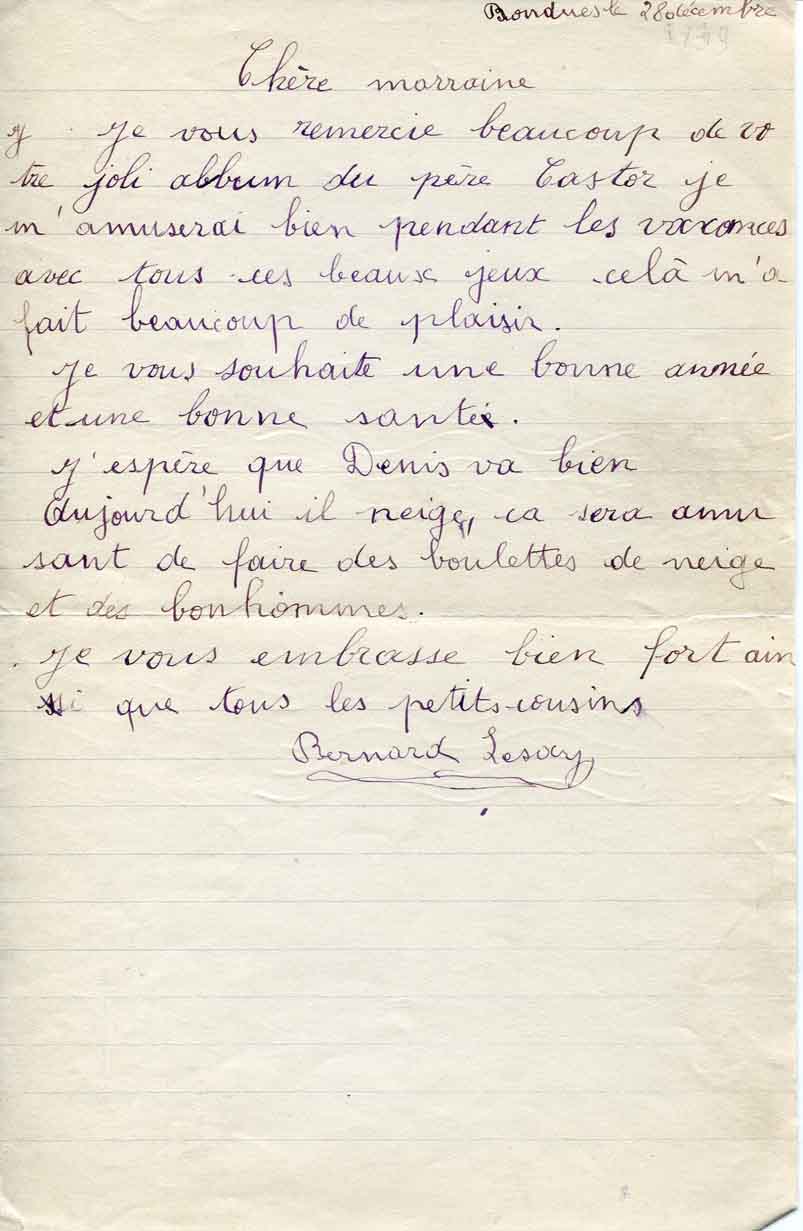 Bondues le 28 décembre
Chère marraine
Je vous remercie beaucoup de vo
tre joli album du père Castor je
m'amuserai bien pendant les vacances
avec tous ces beaux jeux celà m'a
fait beaucoup de plaisir.
Je vous souhaite une bonne année
et une bonne santé.
J'espère que Denis va bien
Aujourd'hui il neige, ca sera amu
sant de faire des boulettes de neige
et des bonhommes.
Je vous embrasse bien fort ain
si que tous les petits-cousins
Bernard Lesay